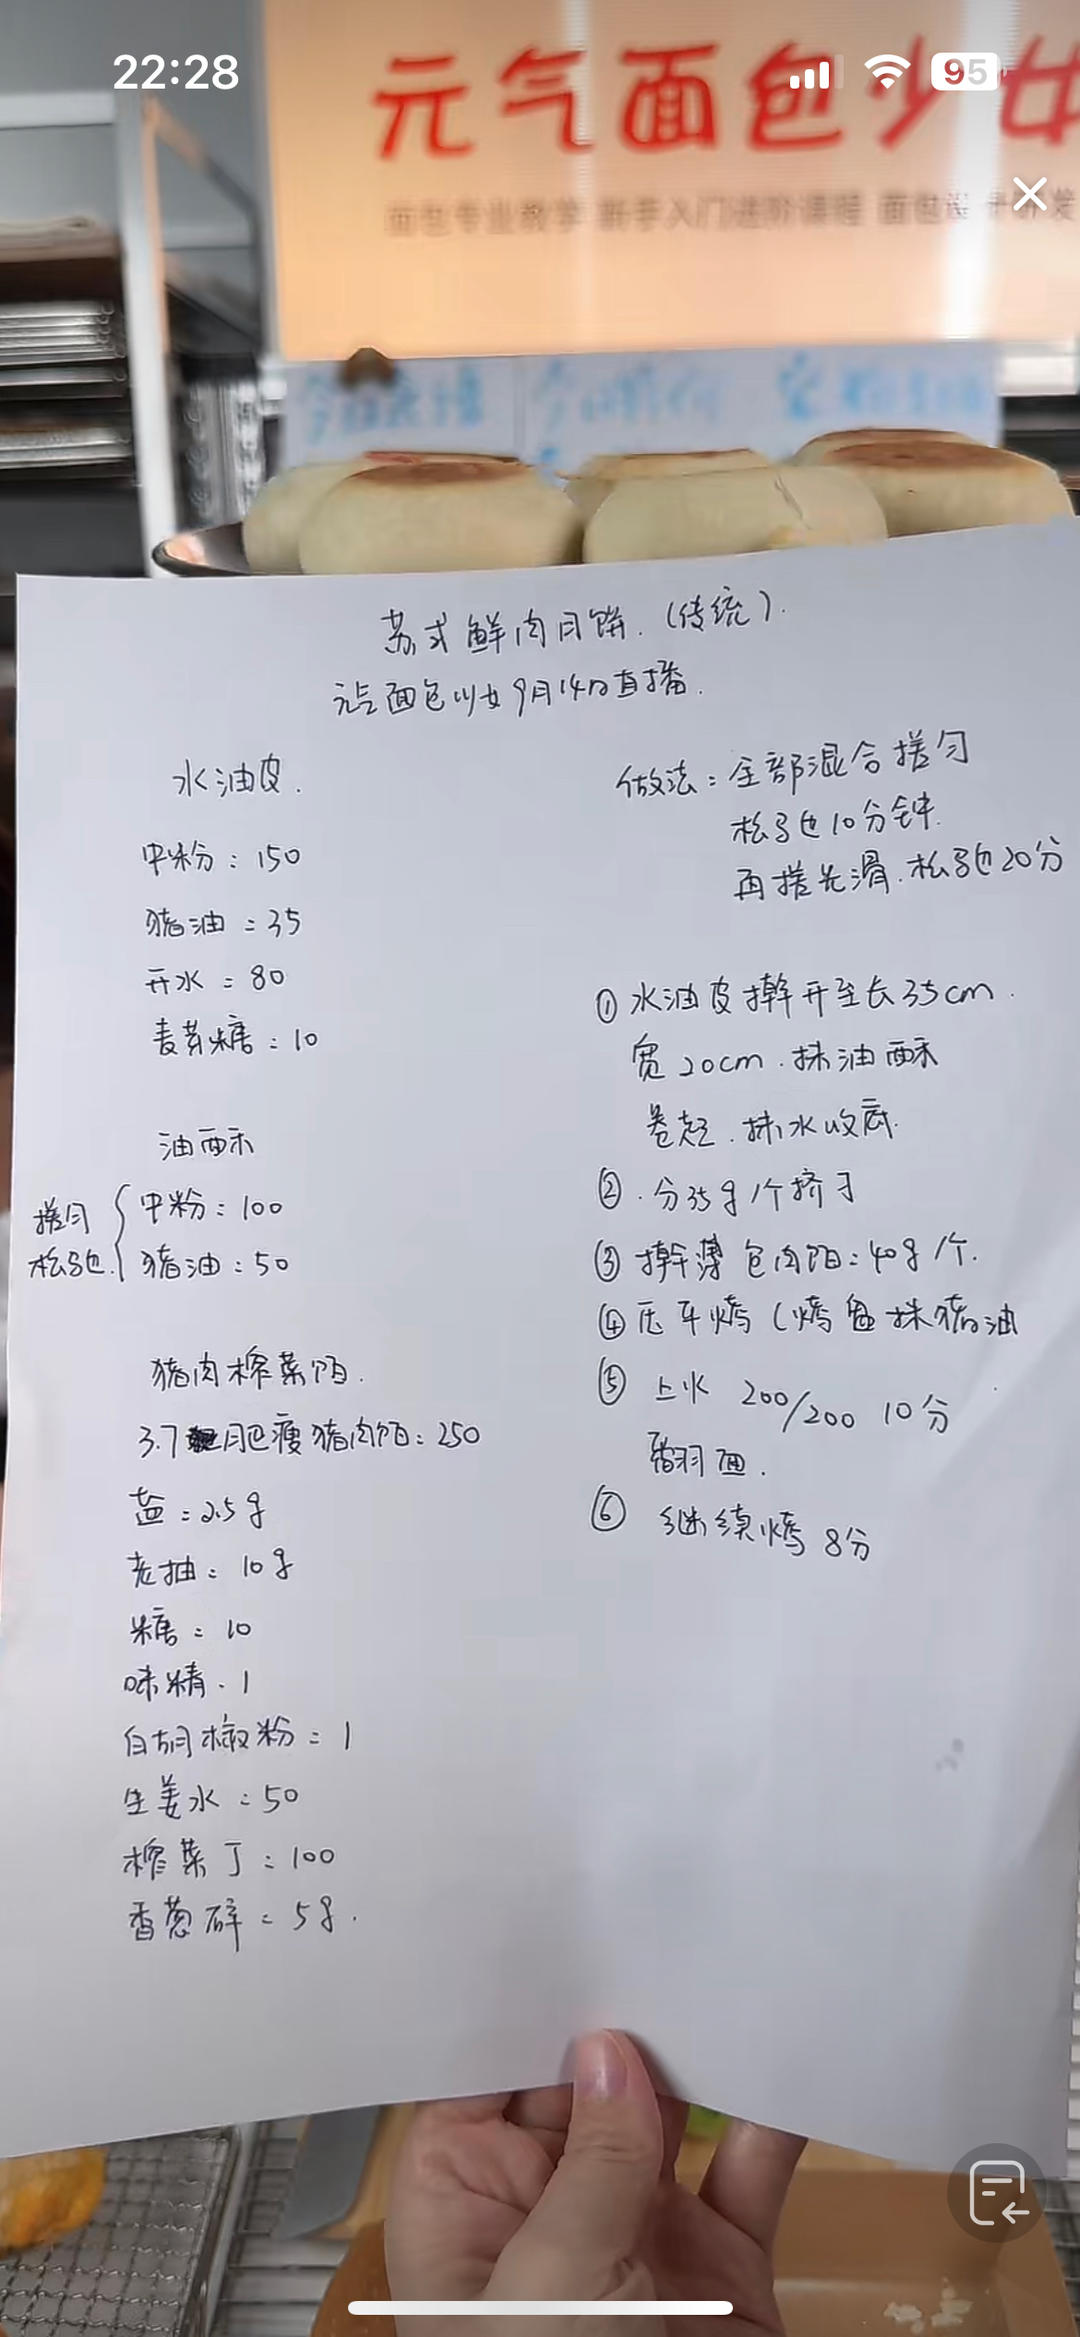 22:28
95
元气面包少女
面包专业教学 新手入门进阶课程
苏式鲜肉月饼.（传统）.
元气面包少女9月14日直播.
水油皮.
中粉：150
猪油：35
开水：80
麦芽糖：10
油酥
揉匀
松弛.
中粉：100
猪油：50
猪肉榨菜馅.
3.7肥瘦猪肉馅：250
盐：2.5g
老抽：10g
糖：10
味精.1
白胡椒粉：1
生姜水：50
榨菜丁：100
香葱碎：5g.
做法：全部混合搓匀
松弛10分钟.
再搓光滑.松弛20分
①水油皮擀开至长35cm.
宽20cm.抹油酥
卷起.抹水收底.
②.分35g/个挤子
③擀薄包肉馅：40g/个.
④压平烤（烤盘抹猪油
⑤上火 200/200 10分
翻面.
⑥继续烤 8分